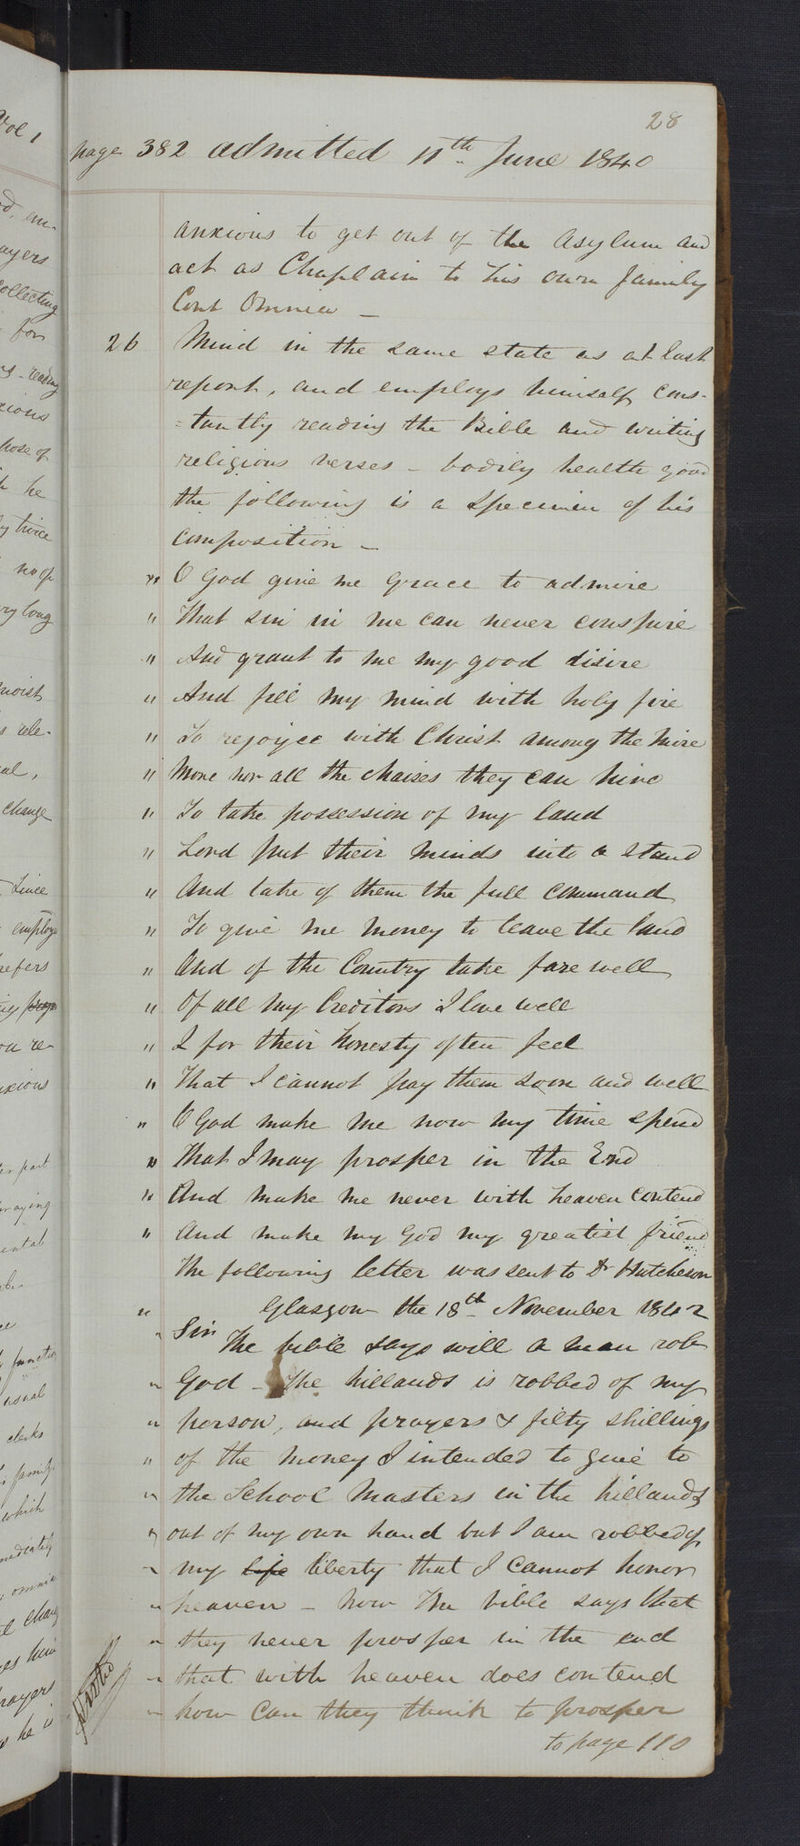 28
page 382 admitted 11th June 1840
anxious to get out of the Asylum and
act as Chaplain to his own family
Cont Omnia —
26 Mind in the same state as at last
report, and employs himself cons-
=tantly reading the Bible and writing
religious verses - bodily health good
the following is a specimen of his
composition —
" O God give me Grace to admire
" That sin in me can never conspire
" And grant to me my good disire
" And fill my mind with holy fire
" To rejoyce with Christ among the hire
" More nor all the chaises they can hire
" To take possession of my land
" Lord put their minds into a stand
" And take of them the full command
" To give me money to leave the land
" And of the Country take farewell
" Of all my Creditors I love well
" I for their honesty often feel
" That I cannot pay them soon and well
" O God make me now my time spend
" That I may prosper in the End
" And make me never with heaven contend
" And make my God my greatist friend
The following letter was sent to Dr Hutcheson
" Glasgow the 18th November 1842
" Sir The bible says will a man rob
" God - The hillands is robbed of my
" person, and prayers & filty shillings
" of the money I intended to give to
" the School Masters in the hillands
" out of my own hand but I am robbed of
" my life liberty that I cannot honor
" heaven - how The bible says that
" they never prosper in the end
" that with heaven does contend
" how can they think to prosper
to page 110
Vol 1
ayers
collecting
for
reading
hose of
he
twice
moist
al,
change
Since
employ
efers
praying
ental
usual
clerks
which
ediately
omnia
rayers
he is